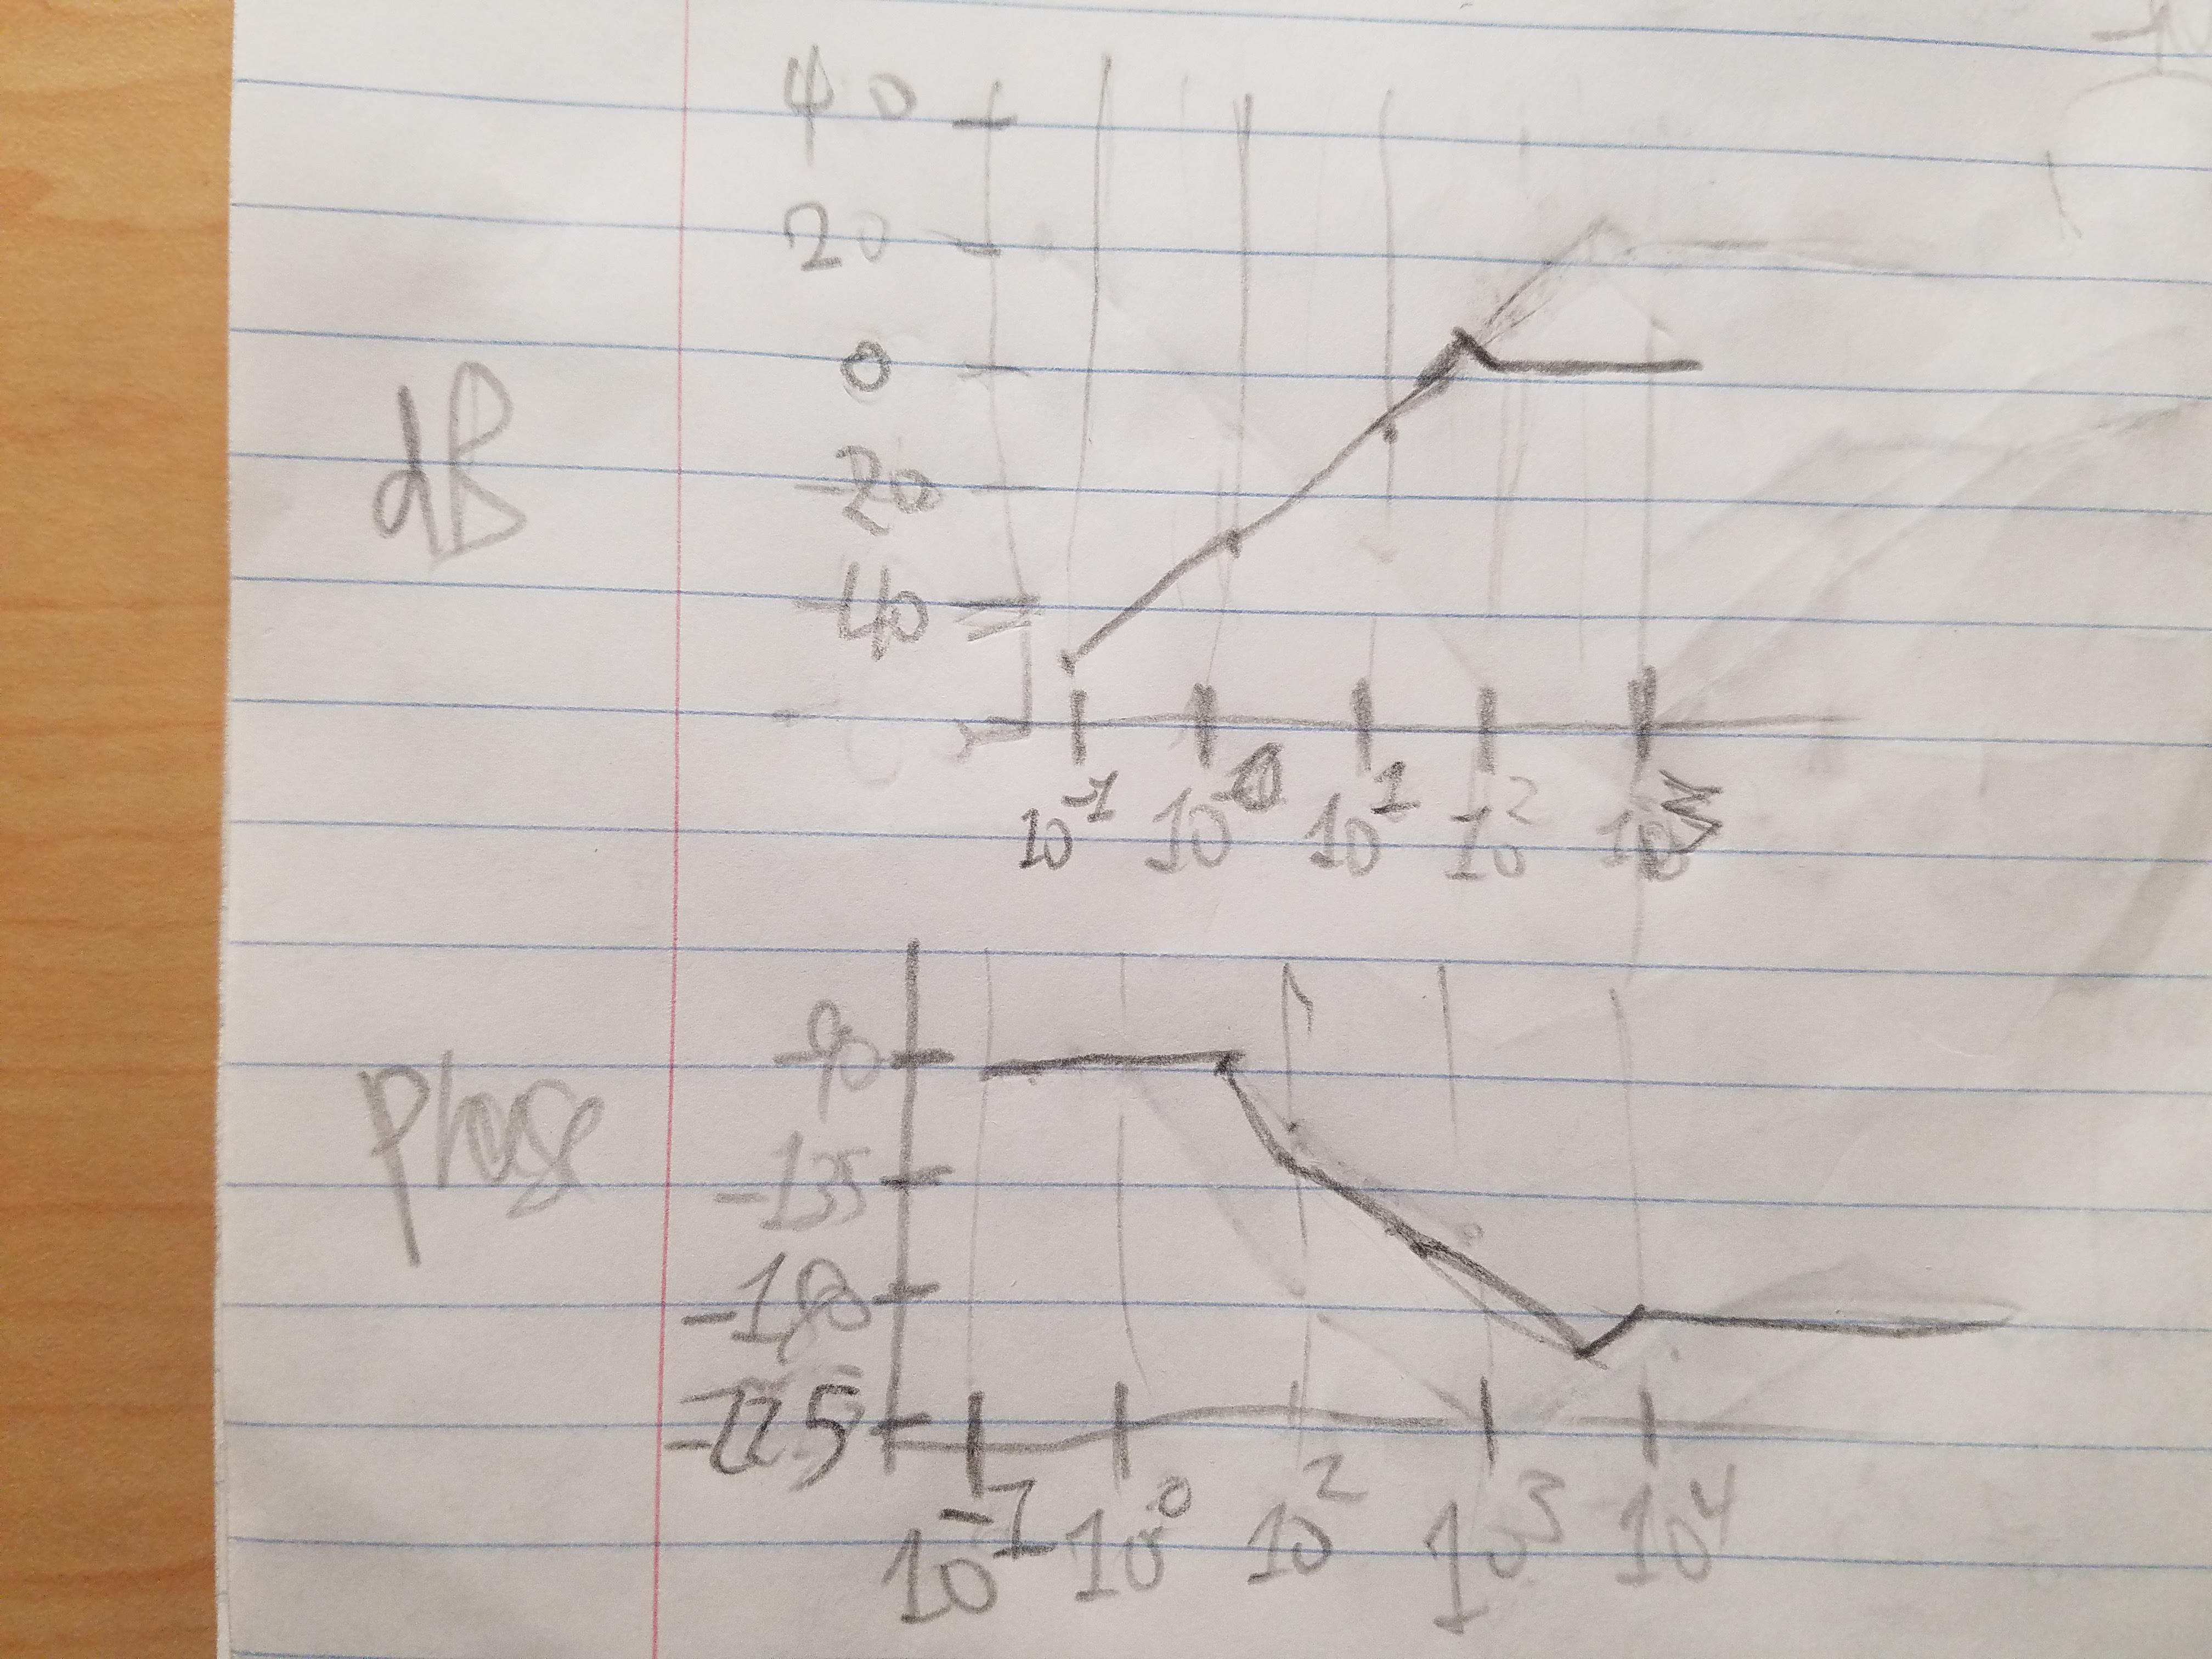 dB
40
20
0
-20
-40
10⁻¹ 10⁰ 10¹ 10² 10³
Phase
-90
-135
-180
-225
10⁻¹ 10⁰ 10² 10³ 10⁴